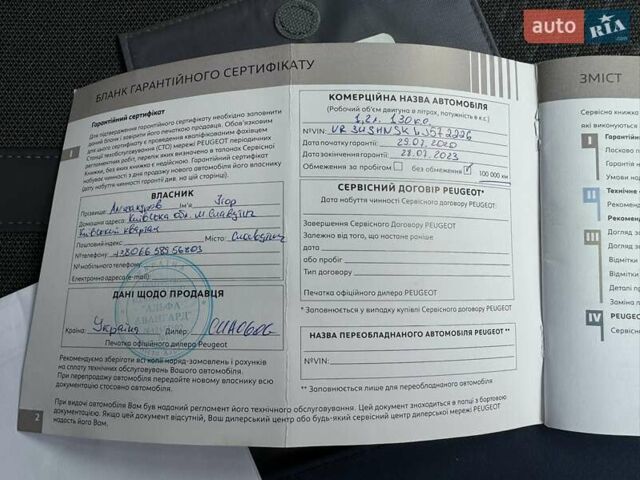 auto RIA.com
БЛАНК ГАРАНТІЙНОГО СЕРТИФІКАТУ
Гарантійний сертифікат
Для підтвердження гарантійного сертифікату необхідно заповнити
даний бланк і завірити його печаткою продавця. Обов'язковим
для цього сертифікату є проведення кваліфікованим фахівцем
Станції техобслуговування (СТО) мережі PEUGEOT періодичних
регламентних робіт, перелік яких визначено в талонах Сервісної
Книжки, без яких книжка є недійсною. Гарантійний сертифікат
набуває чинності з дня продажу нового автомобіля його власнику
(дату набуття чинності гарантії див. на цій сторінці).
I
ВЛАСНИК
Прізвище: Ім'я: Ігор
Домашня адреса: Київська обл. м. Славутич
Київський квартал
Поштовий індекс: Місто: Славутич
№ телефону:
№ мобільного телефону:
Електронна адреса (e-mail):
ДАНІ ЩОДО ПРОДАВЦЯ
"АЛЬФА АВАНГАРД"
Країна: Україна Дилер:
Печатка офіційного дилера Peugeot
Рекомендуємо зберігати всі копії наряд-замовлень і рахунків
на сплату технічних обслуговувань Вашого автомобіля.
При перепродажу автомобіля передайте новому власнику всю
документацію стосовно автомобіля.
При видачі автомобіля Вам був наданий регламент його технічного обслуговування. Цей документ знаходиться в папці з бортовою
документацією. Якщо цей документ відсутній, Ваш дилерський центр або будь-який сервісний центр дилерської мережі PEUGEOT
надасть його Вам.
2
КОМЕРЦІЙНА НАЗВА АВТОМОБІЛЯ
(Робочий об'єм двигуна в літрах, потужність в к.с.)
1,2л. 130 к.с.
№VIN:
Дата початку гарантії: 29.07.2020
Дата закінчення гарантії: 28.07.2023
Обмеження за пробігом: без обмеження 100 000 км
СЕРВІСНИЙ ДОГОВІР PEUGEOT*
Дата набуття чинності Сервісного договору PEUGEOT
Завершення Сервісного договору PEUGEOT
Залежно від того, що настане раніше
дата
або пробіг
Тип договору
Печатка офіційного дилера PEUGEOT
* Заповнюється у випадку купівлі Сервісного договору PEUGEOT
НАЗВА ПЕРЕОБЛАДНАНОГО АВТОМОБІЛЯ PEUGEOT **
№VIN:
** Заповнюється лише для переобладнаного автомобіля
ЗМІСТ
Сервісна книжка
які виконуються
I Гарантійний
Ласкаво
Гарантія
Умови
II Технічне
Реком
III Догляд
Догляд
Відмітки
Деталі
Заміна
IV PEUGEOT
Сервісні